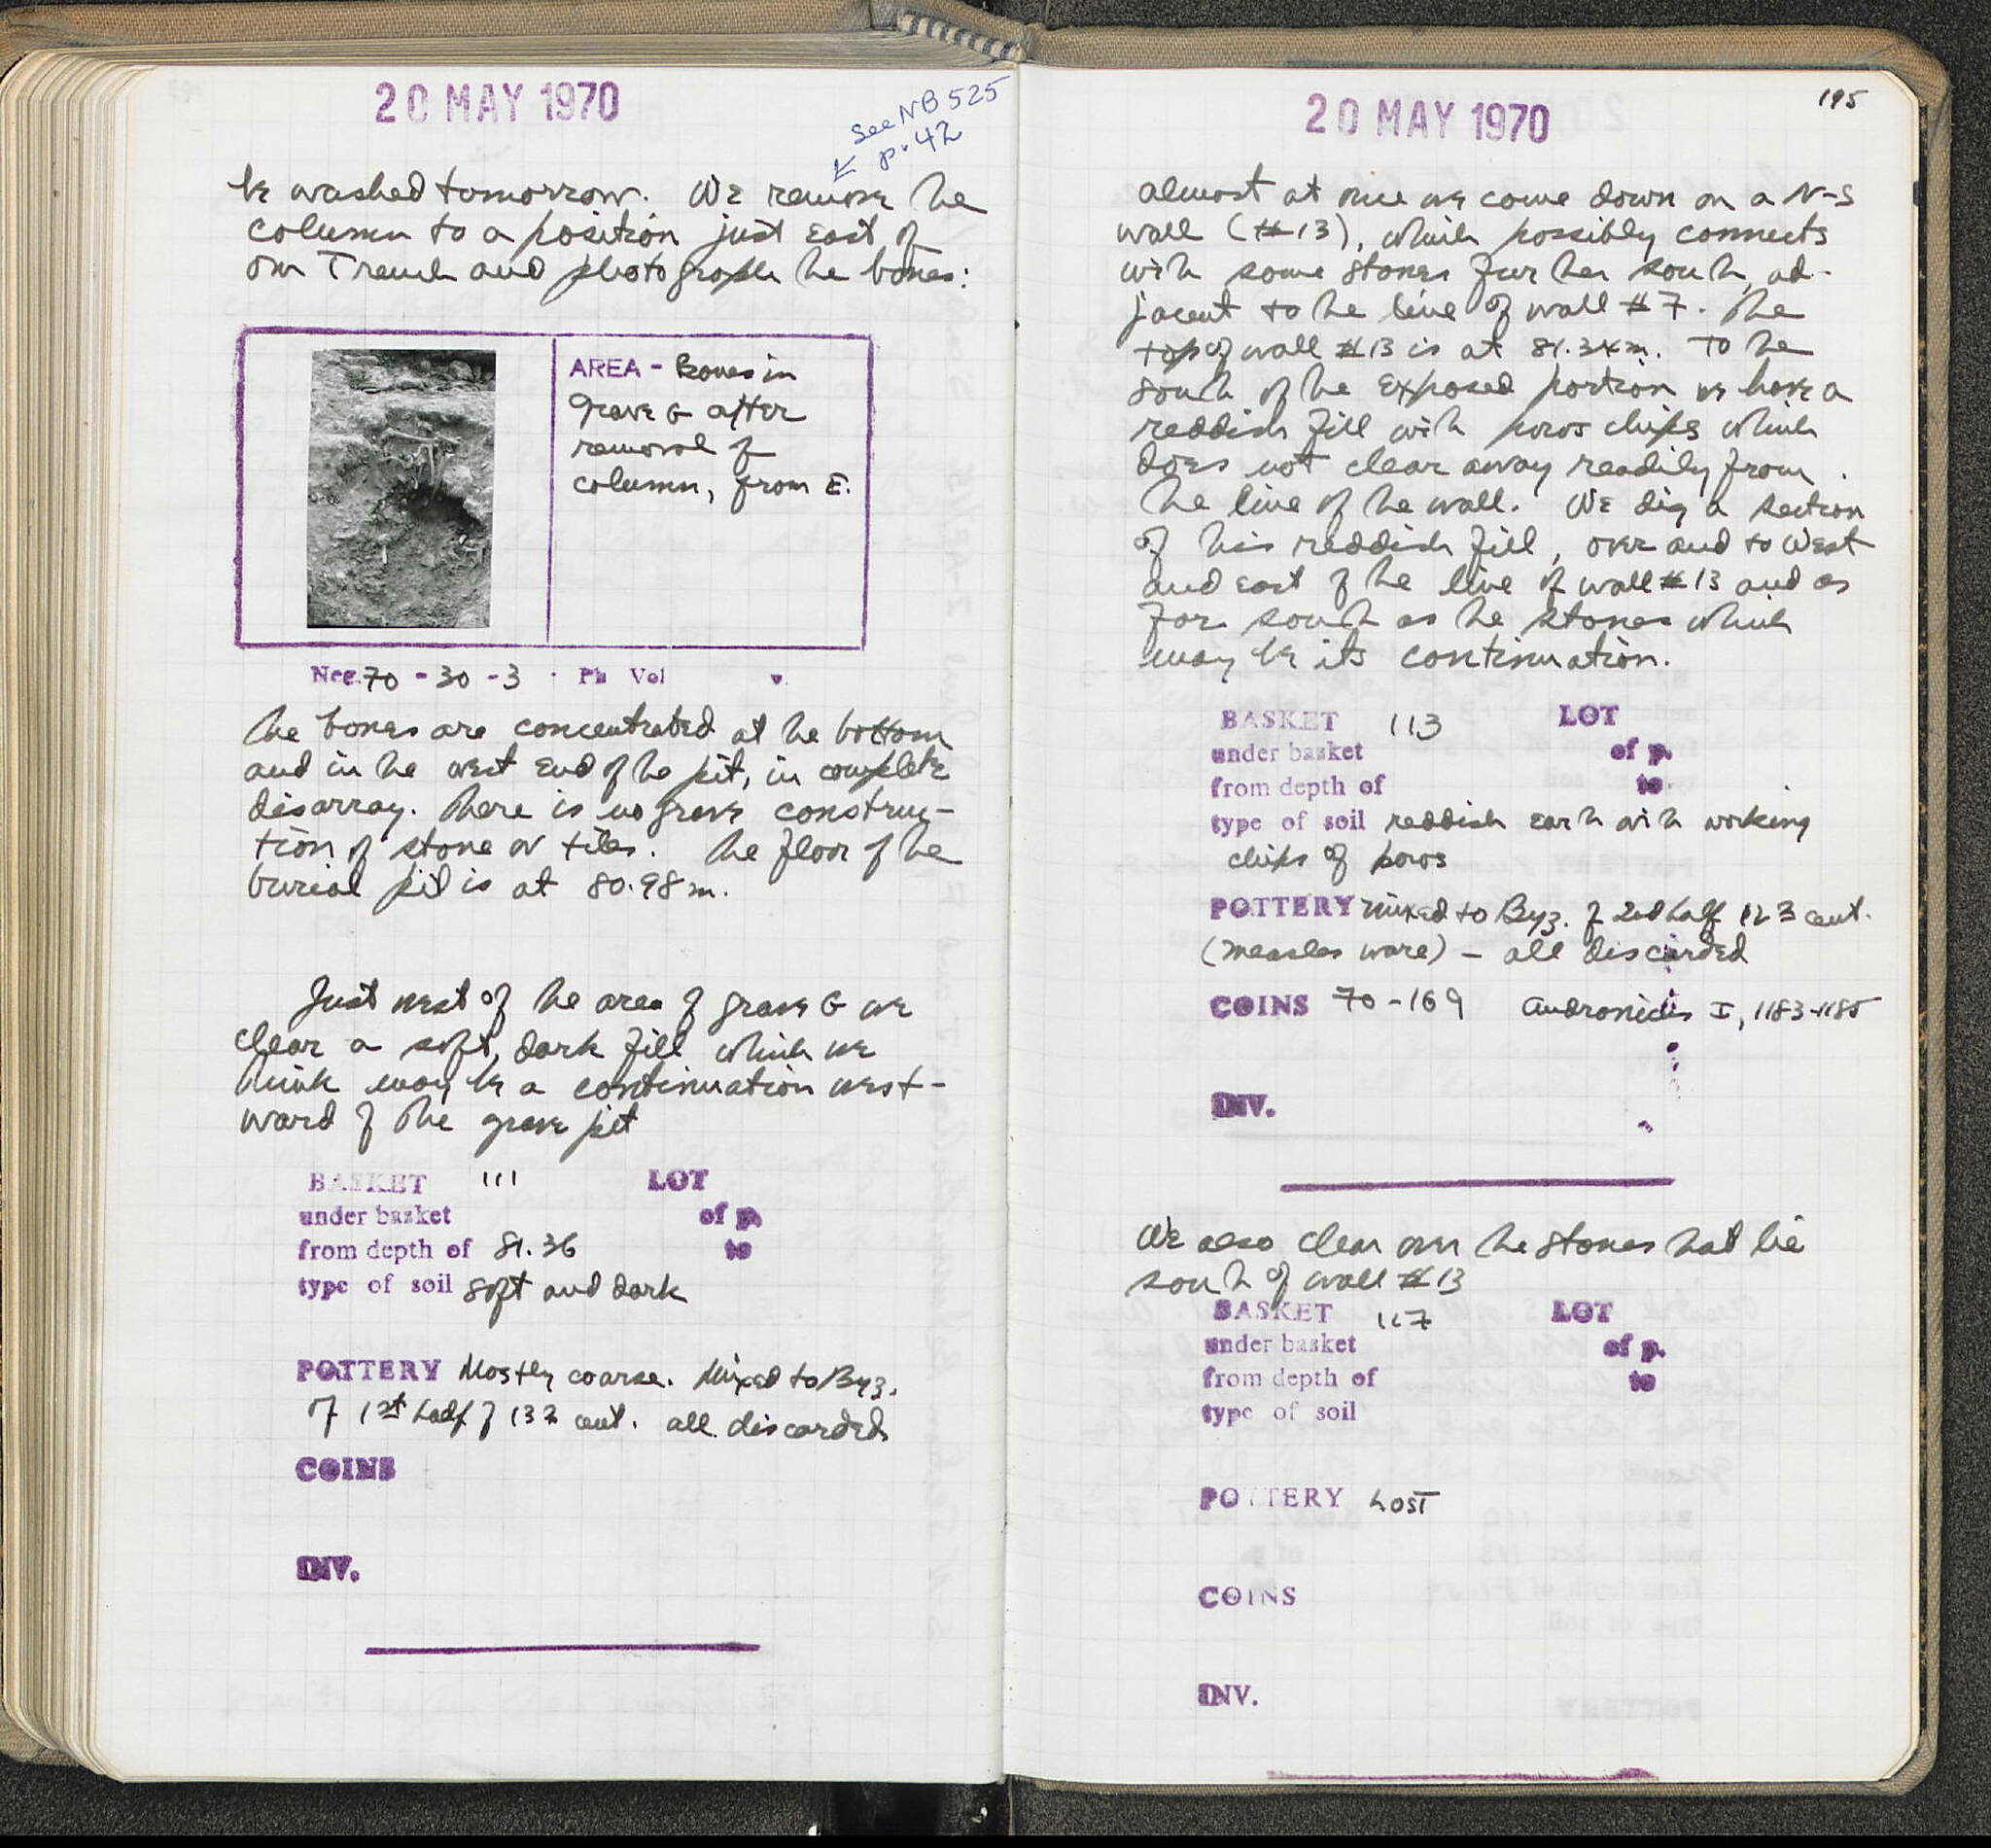 20 MAY 1970
See NB 525
p. 42
be washed tomorrow. We remove the
column to a position just east of
our Trench and photograph the bones:
AREA - Bones in
Grave G after
removal of
column, from E.
Neg. 70 - 30 - 3 Ph Vol
The bones are concentrated at the bottom
and in the west end of the pit, in complete
disarray. There is no grave construc-
tion of stone or tiles. The floor of the
burial pit is at 80.98 m.
Just west of the area of grave G we
clear a soft, dark fill which we
think may be a continuation west-
ward of the grave pit
BASKET 111 LOT
under basket of p.
from depth of 81.36 to
type of soil soft and dark
POTTERY Mostly coarse. Mixed to Byz.
of 1st half of 13th cent. all discarded
COINS
INV.
20 MAY 1970
195
almost at once we come down on a N-S
wall (#13), which possibly connects
with some stones further south, ad-
jacent to the line of wall #7. The
top of wall #13 is at 81.34m. To the
south of the exposed portion we have a
reddish fill with poros chips which
does not clear away readily from
the line of the wall. We dig a section
of this reddish fill, over and to west
and east of the line of wall #13 and as
far south as the stones which
may be its continuation.
BASKET 113 LOT
under basket of p.
from depth of to
type of soil reddish earth with working
chips of poros
POTTERY mixed to Byz. of 2nd half 12th cent.
(measles ware) - all discarded
COINS 70-169 Andronicus I, 1183-1185
INV.
We also clean over the stones that lie
south of wall #13
BASKET 117 LOT
under basket of p.
from depth of to
type of soil
POTTERY LOST
COINS
INV.